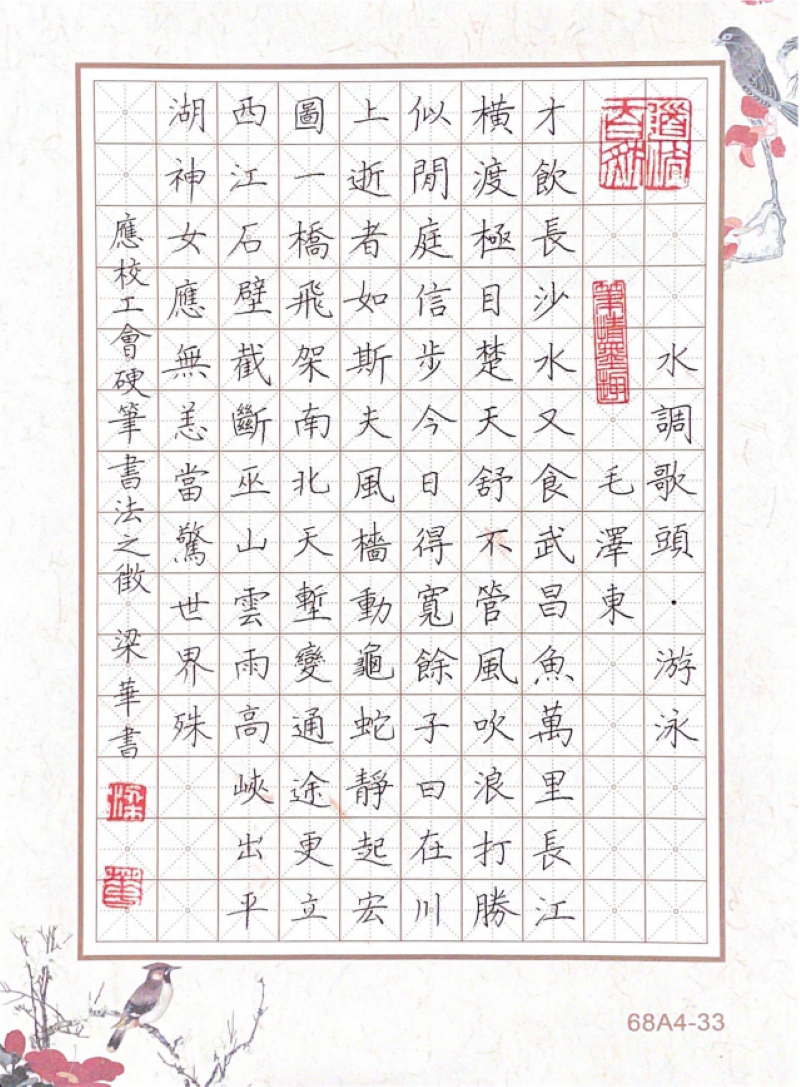 水調歌頭·游泳
毛澤東
才飲長沙水又食武昌魚萬里長江
橫渡極目楚天舒不管風吹浪打勝
似閒庭信步今日得寬餘子曰在川
上逝者如斯夫風檣動龜蛇靜起宏
圖一橋飛架南北天塹變通途更立
西江石壁截斷巫山雲雨高峽出平
湖神女應無恙當驚世界殊
應校工會硬筆書法之徵 梁華書
梁
華
68A4-33